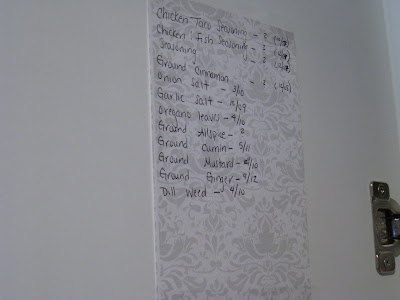 Chicken Taco Seasoning -
Chicken : Fish Seasoning -
Seasoning -
Ground Cinnamon -
Onion Salt - 3/10
Garlic Salt - 10/09
Oregano leaves - 4/10
Ground Allspice -
Ground Cumin - 5/11
Ground Mustard - /10
Ground Ginger - 4/12
Dill Weed - 4/10